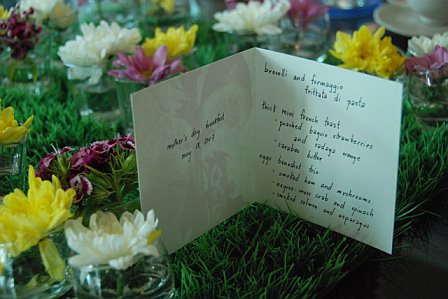 mother's day breakfast
may 12, 2013
broculli and formaggio
frittata di pasta
thick mini french toast
• poached baguio strawberries
and sadaga orange
• caraboa butter
eggs benedict trio
• smoked ham and mushrooms
crab and spinach
• smoked salmon and asparagus